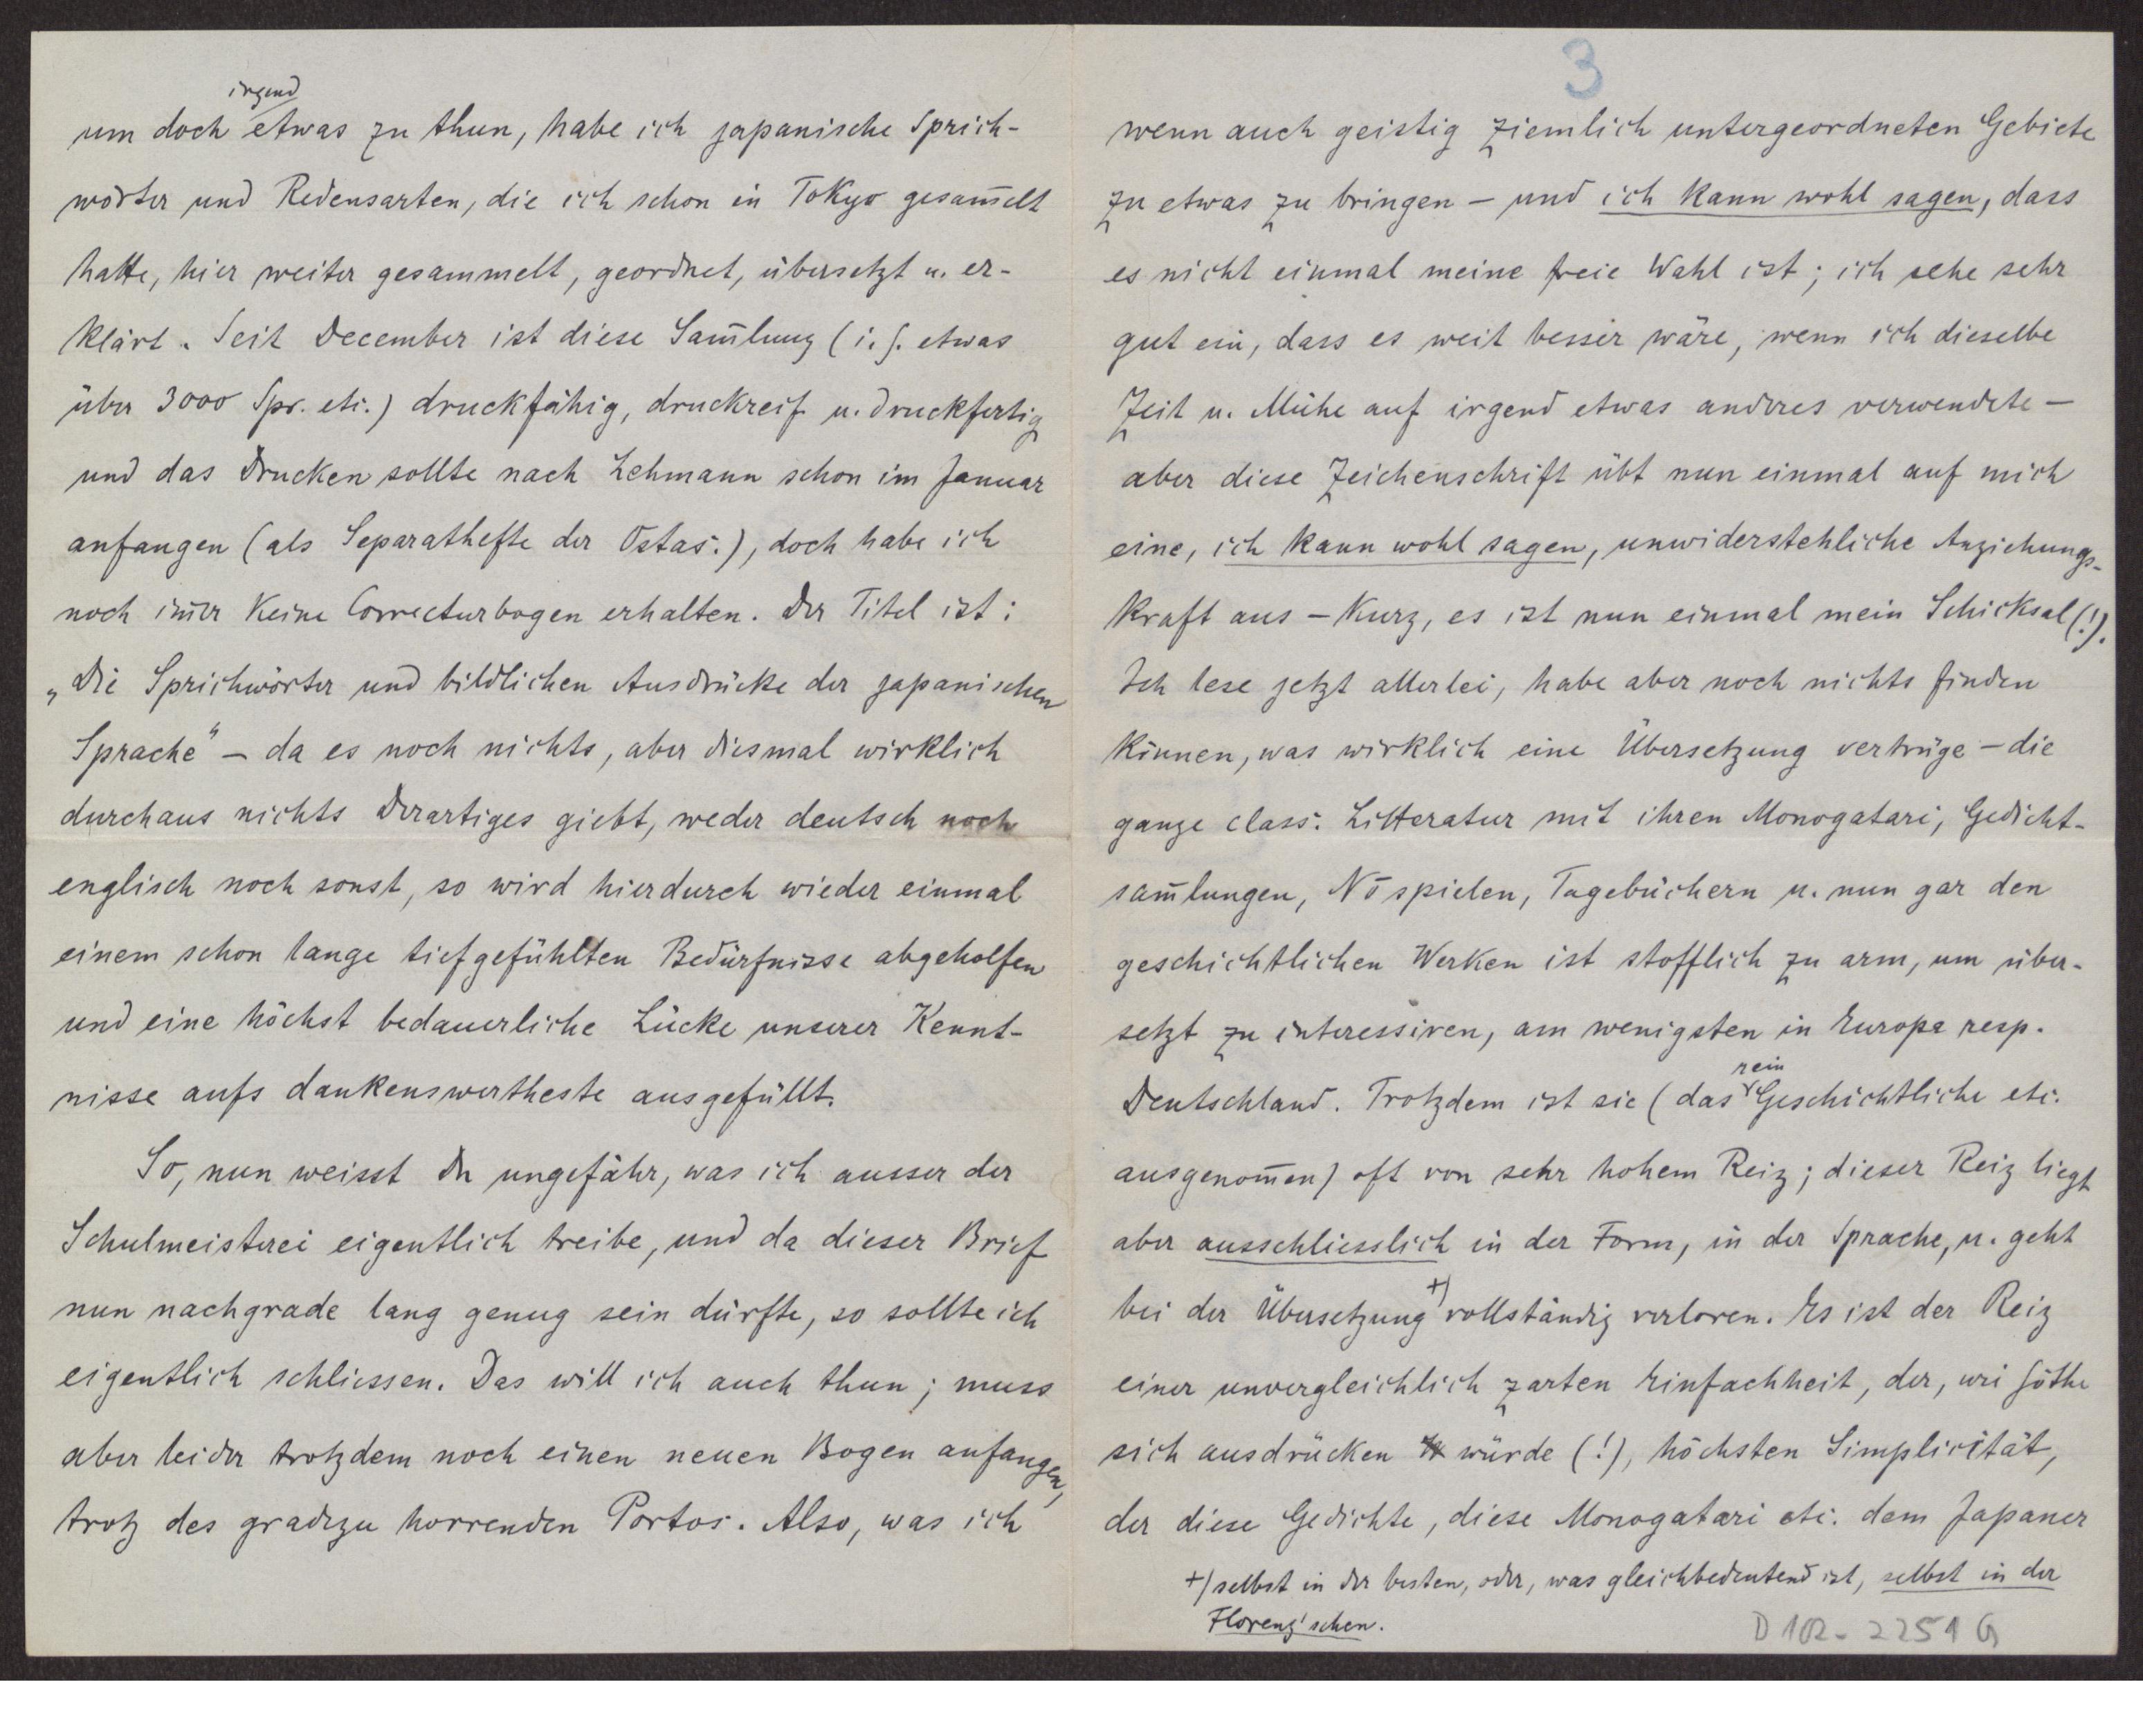 irgend
um doch etwas zu thun, habe ich japanische Sprich-
wörter und Redensarten, die ich schon in Tokyo gesam̄elt
hatte, hier weiter gesammelt, geordnet, übersetzt u. er-
klärt. Seit December ist diese Sam̄lung (i. g. etwas
über 3000 Spr. etc.) druckfähig, druckreif u. druckfertig
und das Drucken sollte nach Lehmann schon im Januar
anfangen (als Separathefte der Ostas.), doch habe ich
noch im̄er keine Correcturbogen erhalten. Der Titel ist:
„Die Sprichwörter und bildlichen Ausdrücke der japanischen
Sprache" – da es noch nichts, aber diesmal wirklich
durchaus nichts Derartiges giebt, weder deutsch noch
englisch noch sonst, so wird hierdurch wieder einmal
einem schon lange tiefgefühlten Bedürfnisse abgeholfen
und eine höchst bedauerliche Lücke unserer Kennt-
nisse aufs dankenswertheste ausgefüllt.
So, nun weisst Du ungefähr, was ich ausser der
Schulmeisterei eigentlich treibe, und da dieser Brief
nun nachgrade lang genug sein dürfte, so sollte ich
eigentlich schliessen. Das will ich auch thun; muss
aber leider trotzdem noch einen neuen Bogen anfangen,
trotz des gradezu horrenden Portos. Also, was ich
3
wenn auch geistig ziemlich untergeordneten Gebiete
zu etwas zu bringen – und ich kann wohl sagen, dass
es nicht einmal meine freie Wahl ist; ich sehe sehr
gut ein, dass es weit besser wäre, wenn ich dieselbe
Zeit u. Mühe auf irgend etwas anderes verwendete –
aber diese Zeichenschrift übt nun einmal auf mich
eine, ich kann wohl sagen, unwiderstehliche Anziehungs-
kraft aus – kurz, es ist nun einmal mein Schicksal (!).
Ich lese jetzt allerlei, habe aber noch nichts finden
können, was wirklich eine Übersetzung vertrüge – die
ganze class. Litteratur mit ihren Monogatari, Gedicht-
sam̄lungen, Nōspielen, Tagebüchern u. nun gar den
geschichtlichen Werken ist stofflich zu arm, um über-
setzt zu interessiren, am wenigsten in Europa resp.
rein
Deutschland. Trotzdem ist sie (das Geschichtliche etc.
ausgenom̄en) oft von sehr hohem Reiz; dieser Reiz liegt
aber ausschliesslich in der Form, in der Sprache, u. geht
bei der Übersetzung +) vollständig verloren. Es ist der Reiz
einer unvergleichlich zarten Einfachheit, der, wie Göthe
sich ausdrücken würde (!), höchsten Simplicität,
der diese Gedichte, diese Monogatari etc. dem Japaner
+) selbst in der besten, oder, was gleichbedeutend ist, selbst in der
Florenz'schen.
D 102-2251 G